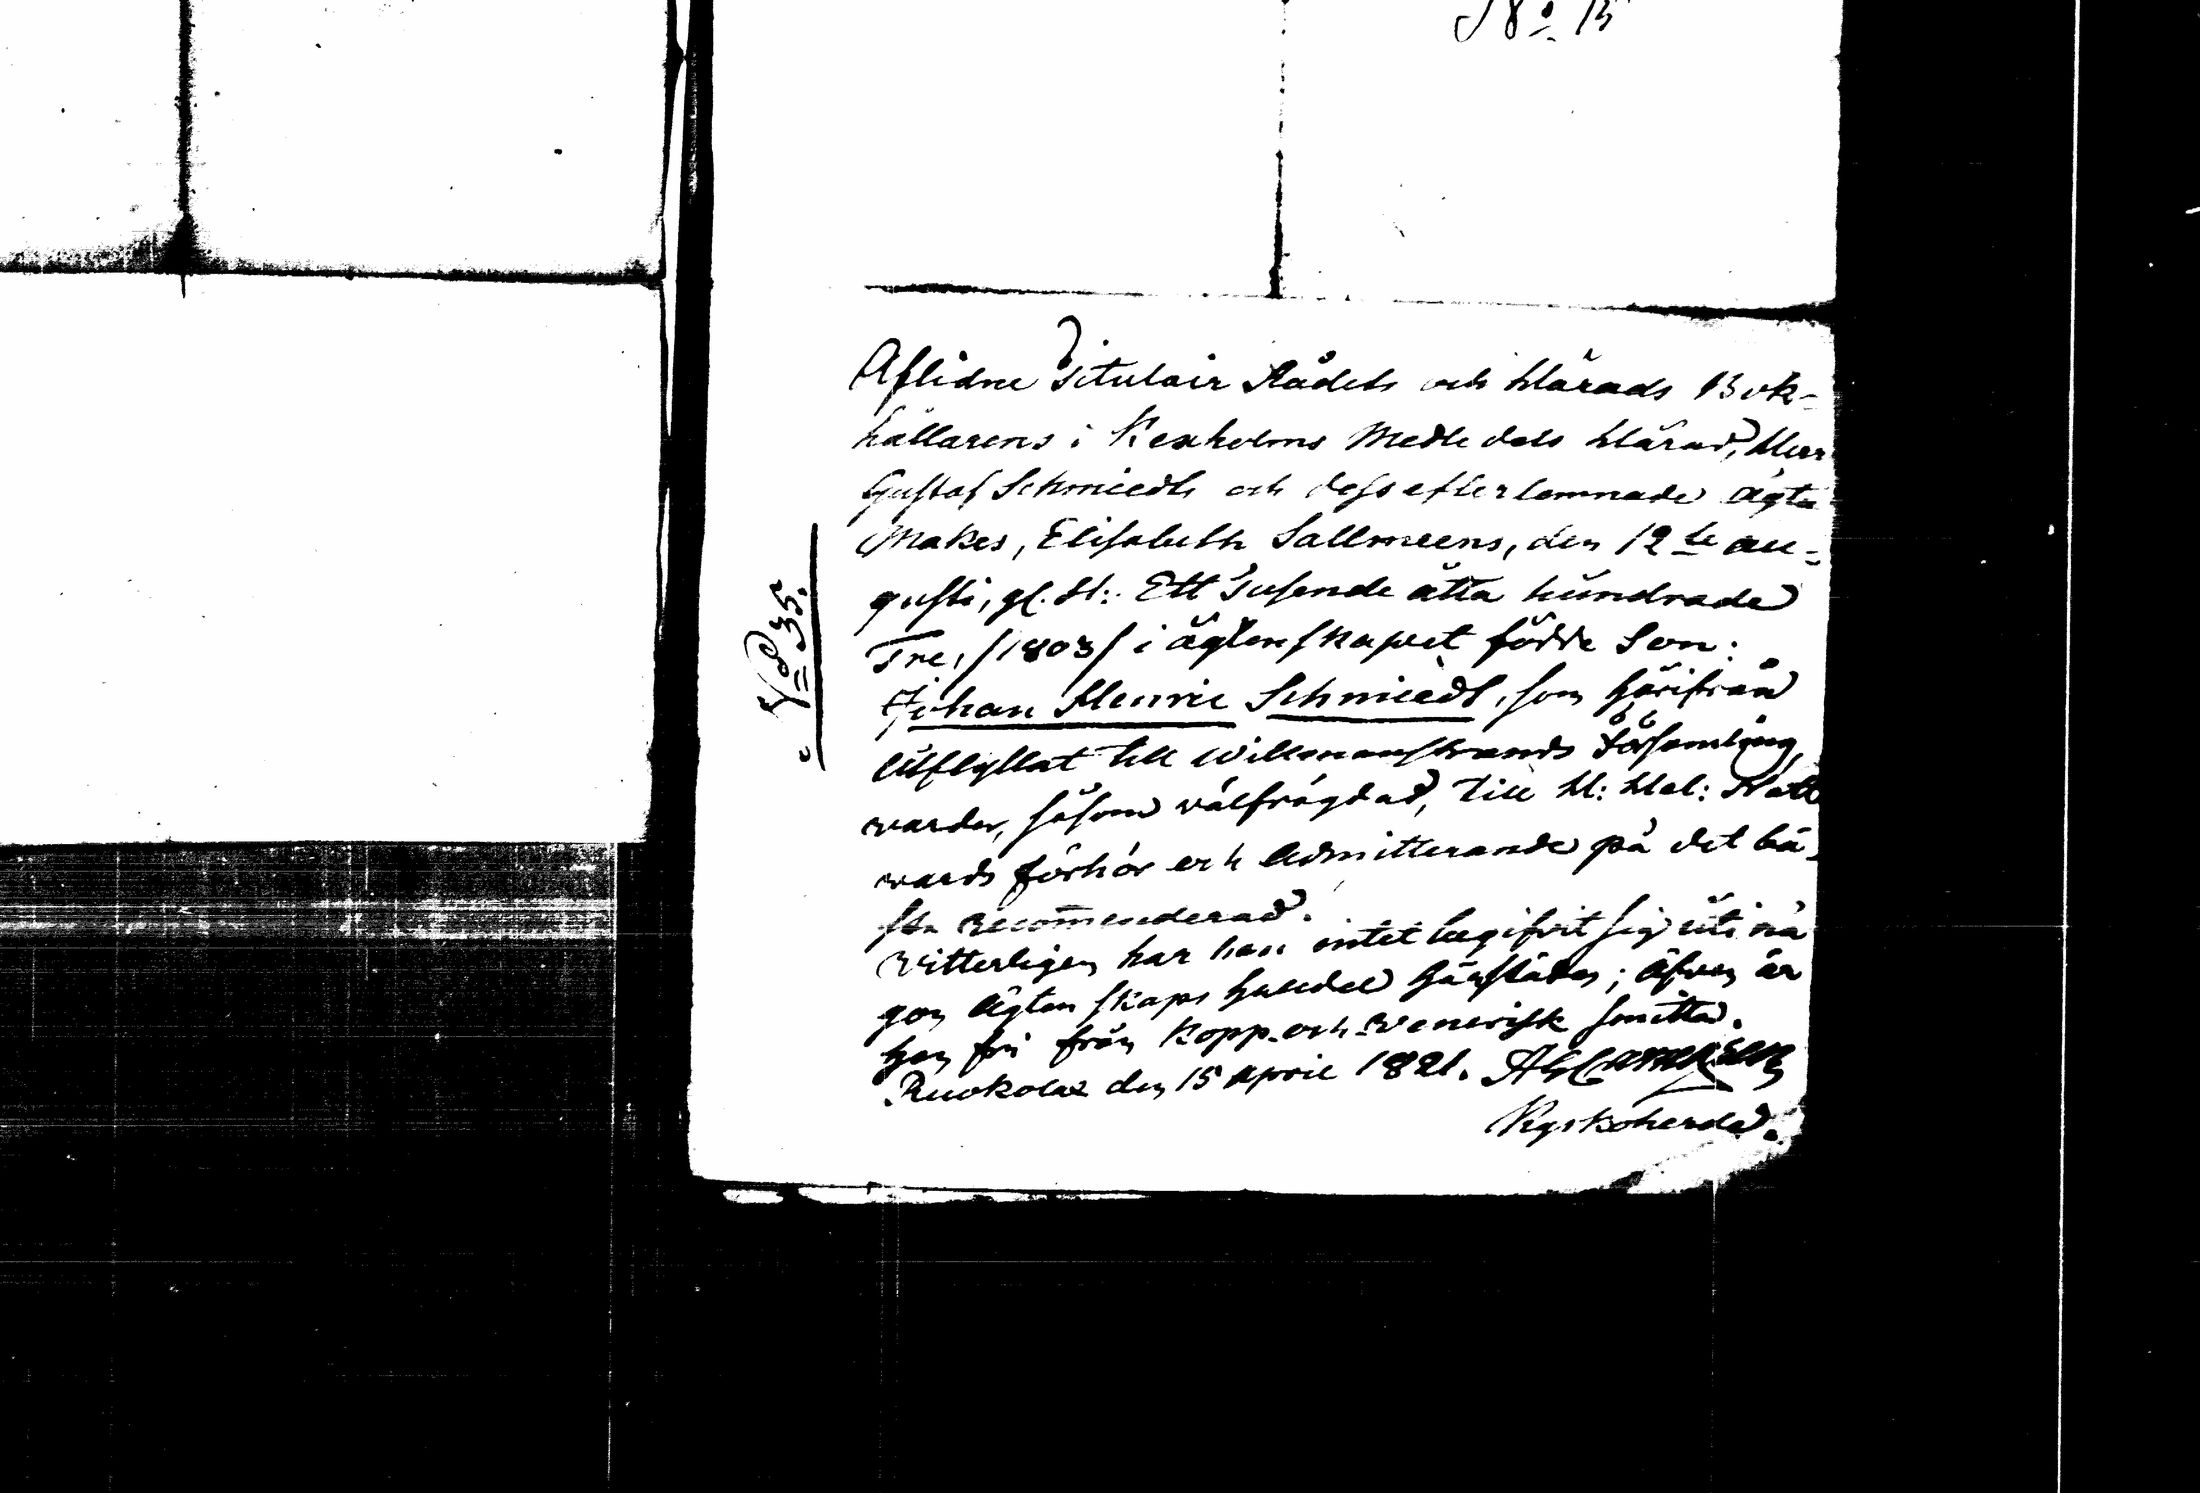 No 15
Aflidne Titulair Rådets och Härads Bok-
hållarens i Kexholms Medledels Härad, Herr
Gustaf Schmiedts och dess efterlemnade ägta
Makes, Elisabeth Sallmeens, den 12te au-
gusti, gl. st: Ett Tusende åtta hundrade
Tre, /1803/ i ägtenskapet födde Son:
Johan Henric Schmiedt, som härifrån
utflyttat till Willmanstrands Församling,
warder, såsom wälfrägdad, till H: H: Natt
wards förhör och Admitterande på det bä-
sta recommenderad.
Witterligen har han intet begifvit sig uti nå
gon ägtenskaps handel härstädes; äfven är
han fri från Kopp- och Venerisk smitta.
Ruokolax den 15 April 1821.
Kyrkoherde.
No 35.